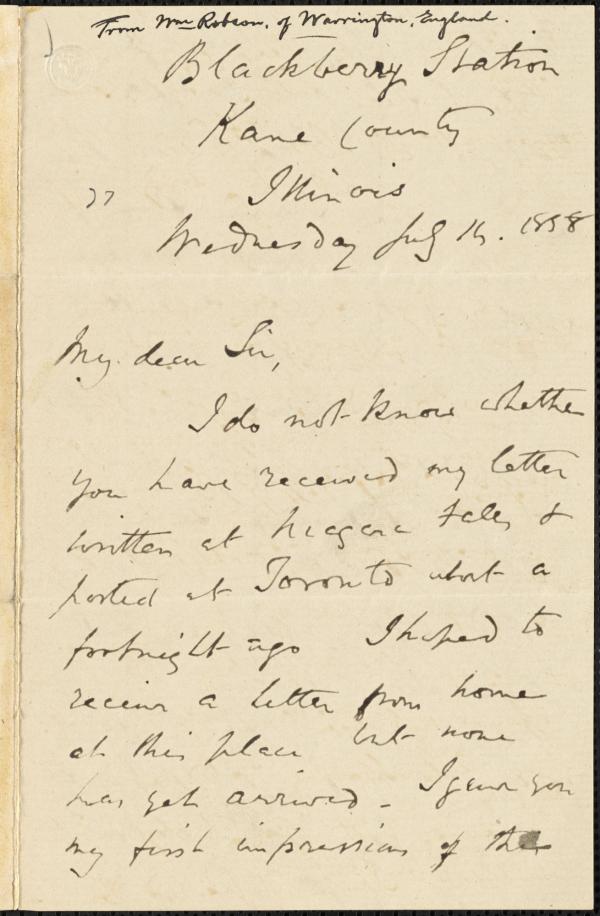 From Wm Robson, of Warrington, England.
Blackberry Station
Kane County
Illinois
Wednesday July 14. 1858
My dear Sir,
I do not know whether
you have received my letter
written at Niagara Falls &
posted at Toronto about a
fortnight ago I hoped to
receive a letter from home
at this place but none
has yet arrived - I gave you
my first impressions of the